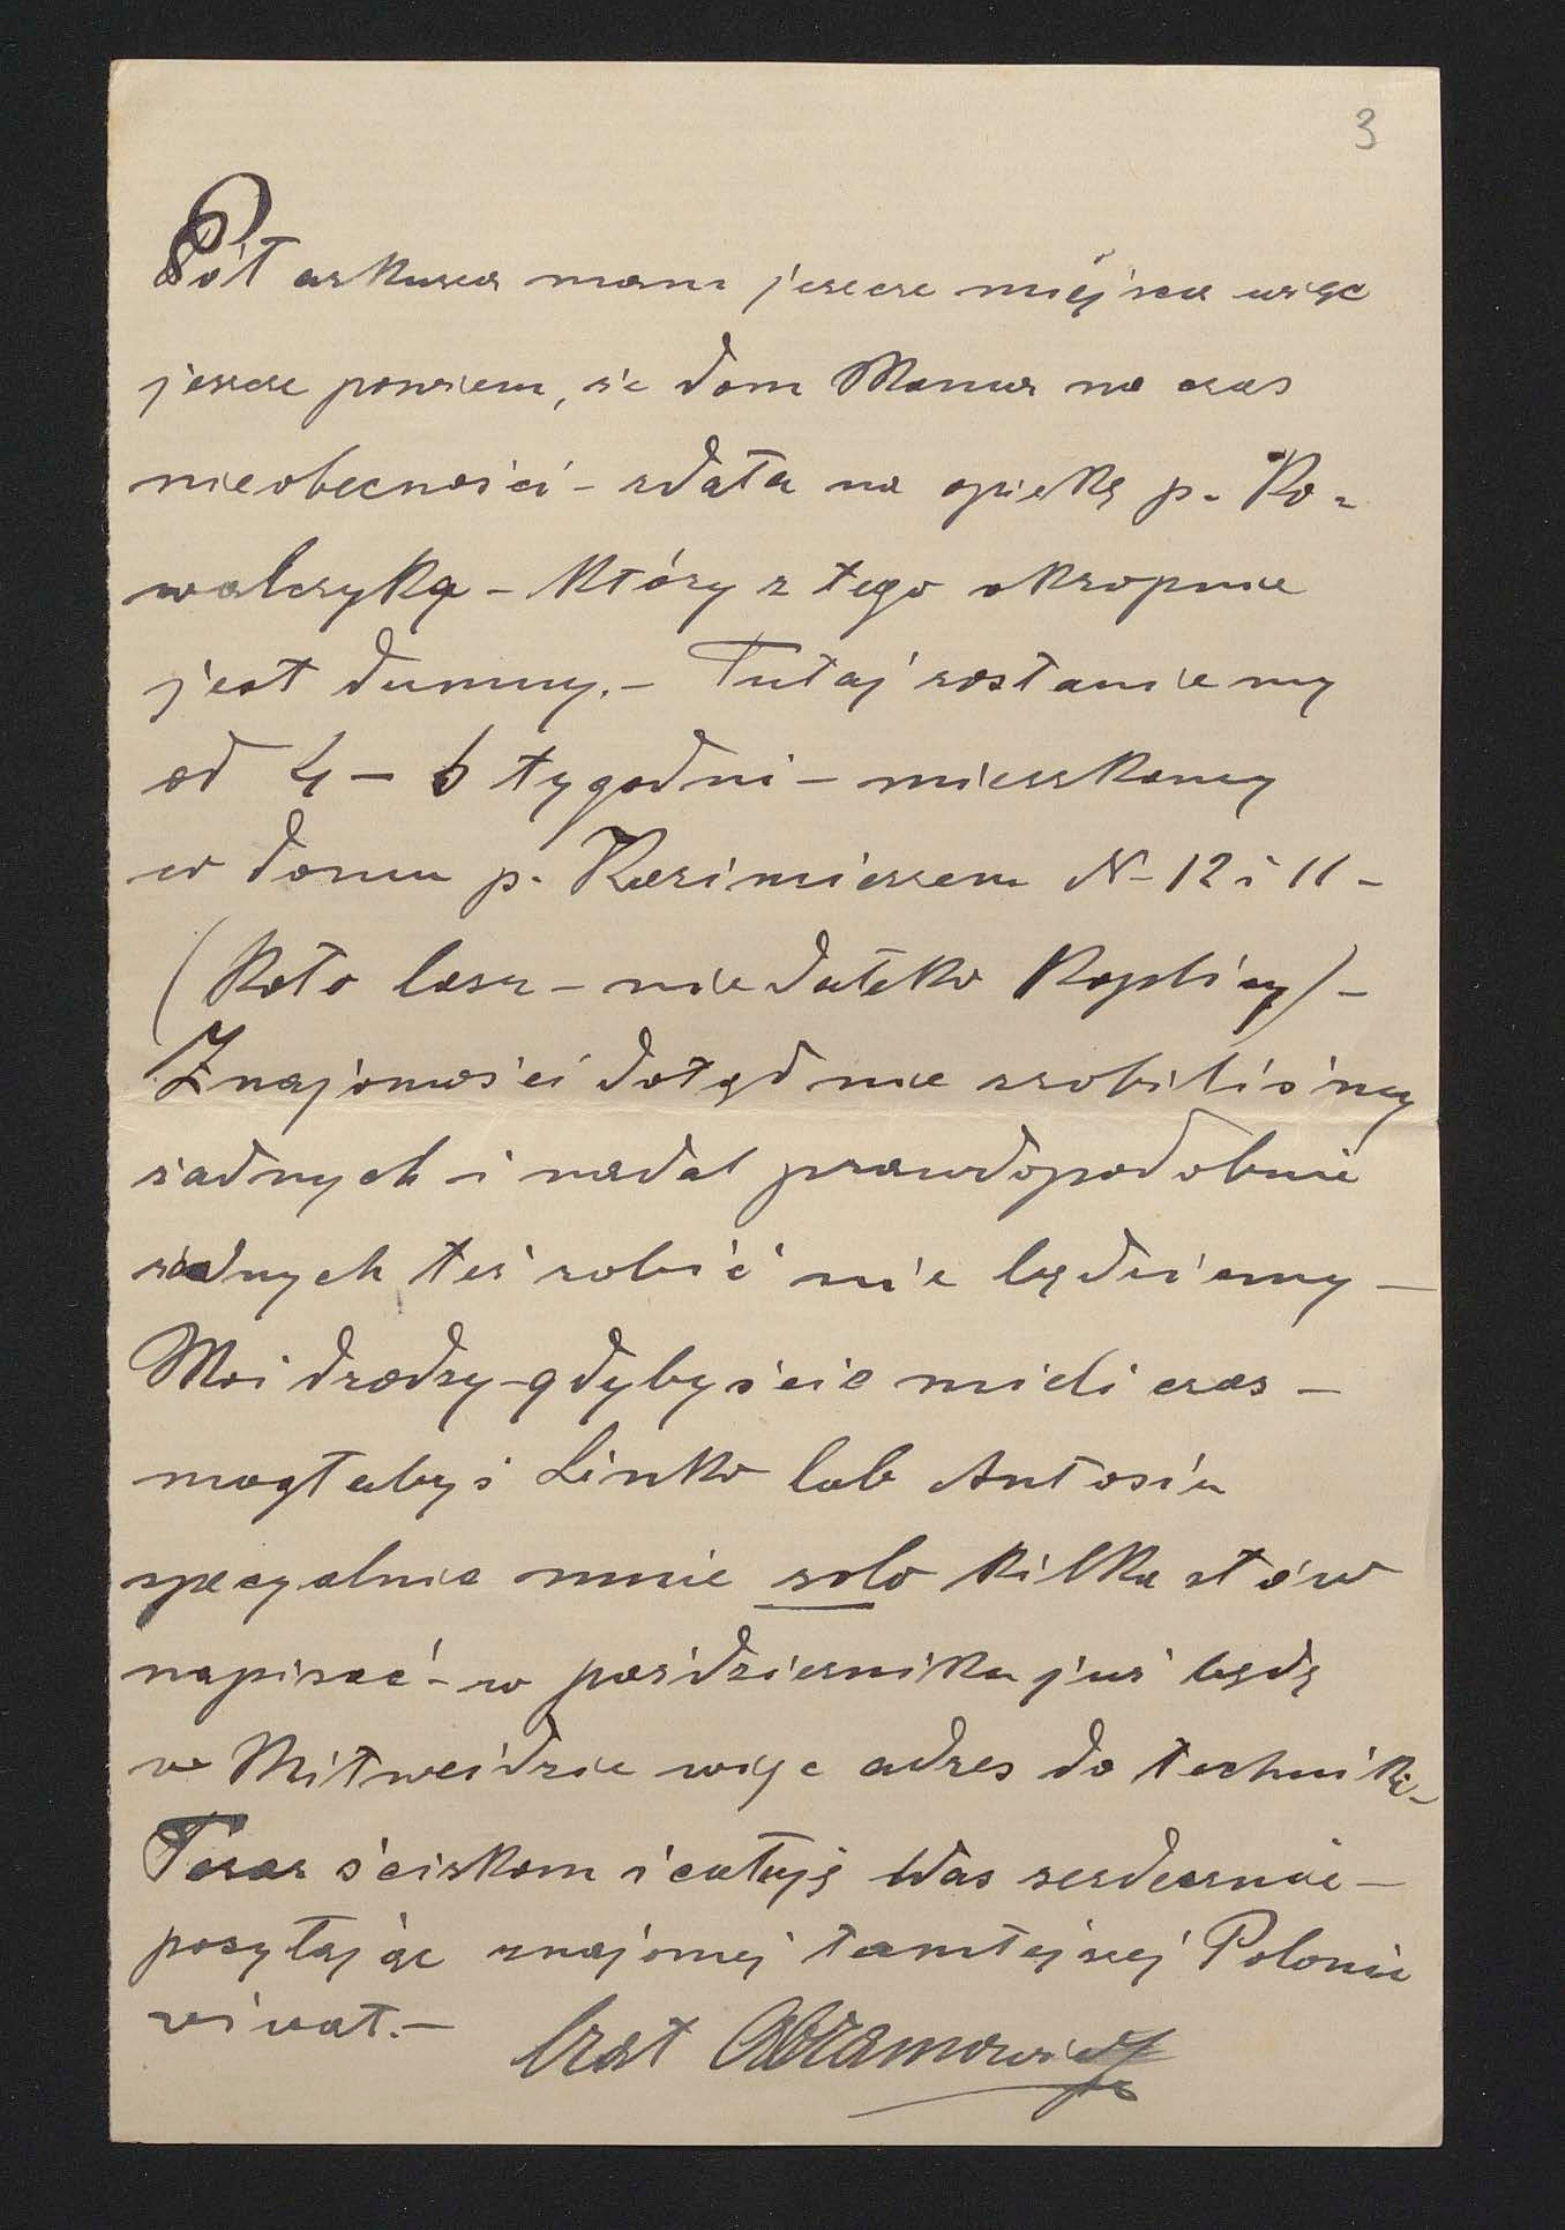 3
Pół arkusza mam jeszcze miejsca więc
jeszcze powiem, że dom Mama na czas
nieobecności – zdała na opiekę p. Ko-
walczyka – który z tego okropnie
jest dumny. – Tutaj zostaniemy
od 4 – 6 tygodni – mieszkamy
w domu p. Kazimierzem N– 12 i 11 –
(koło lasu – niedaleko kaplicy) –
Znajomości dotąd nie zrobiliśmy
żadnych – i nadal prawdopodobnie
żadnych też robić nie będziemy –
Moi drodzy – gdybyście mieli czas –
mogłabyś Linko lub Antosia
specyalnie mnie solo kilka słów
napisać – w październiku już będę
w Mitweidzie więc adres do techniki –
Teraz ściskam i całuję Was serdecznie –
posyłając znajomej tamtejszej Polonie
vivat. – brat Abramowicz